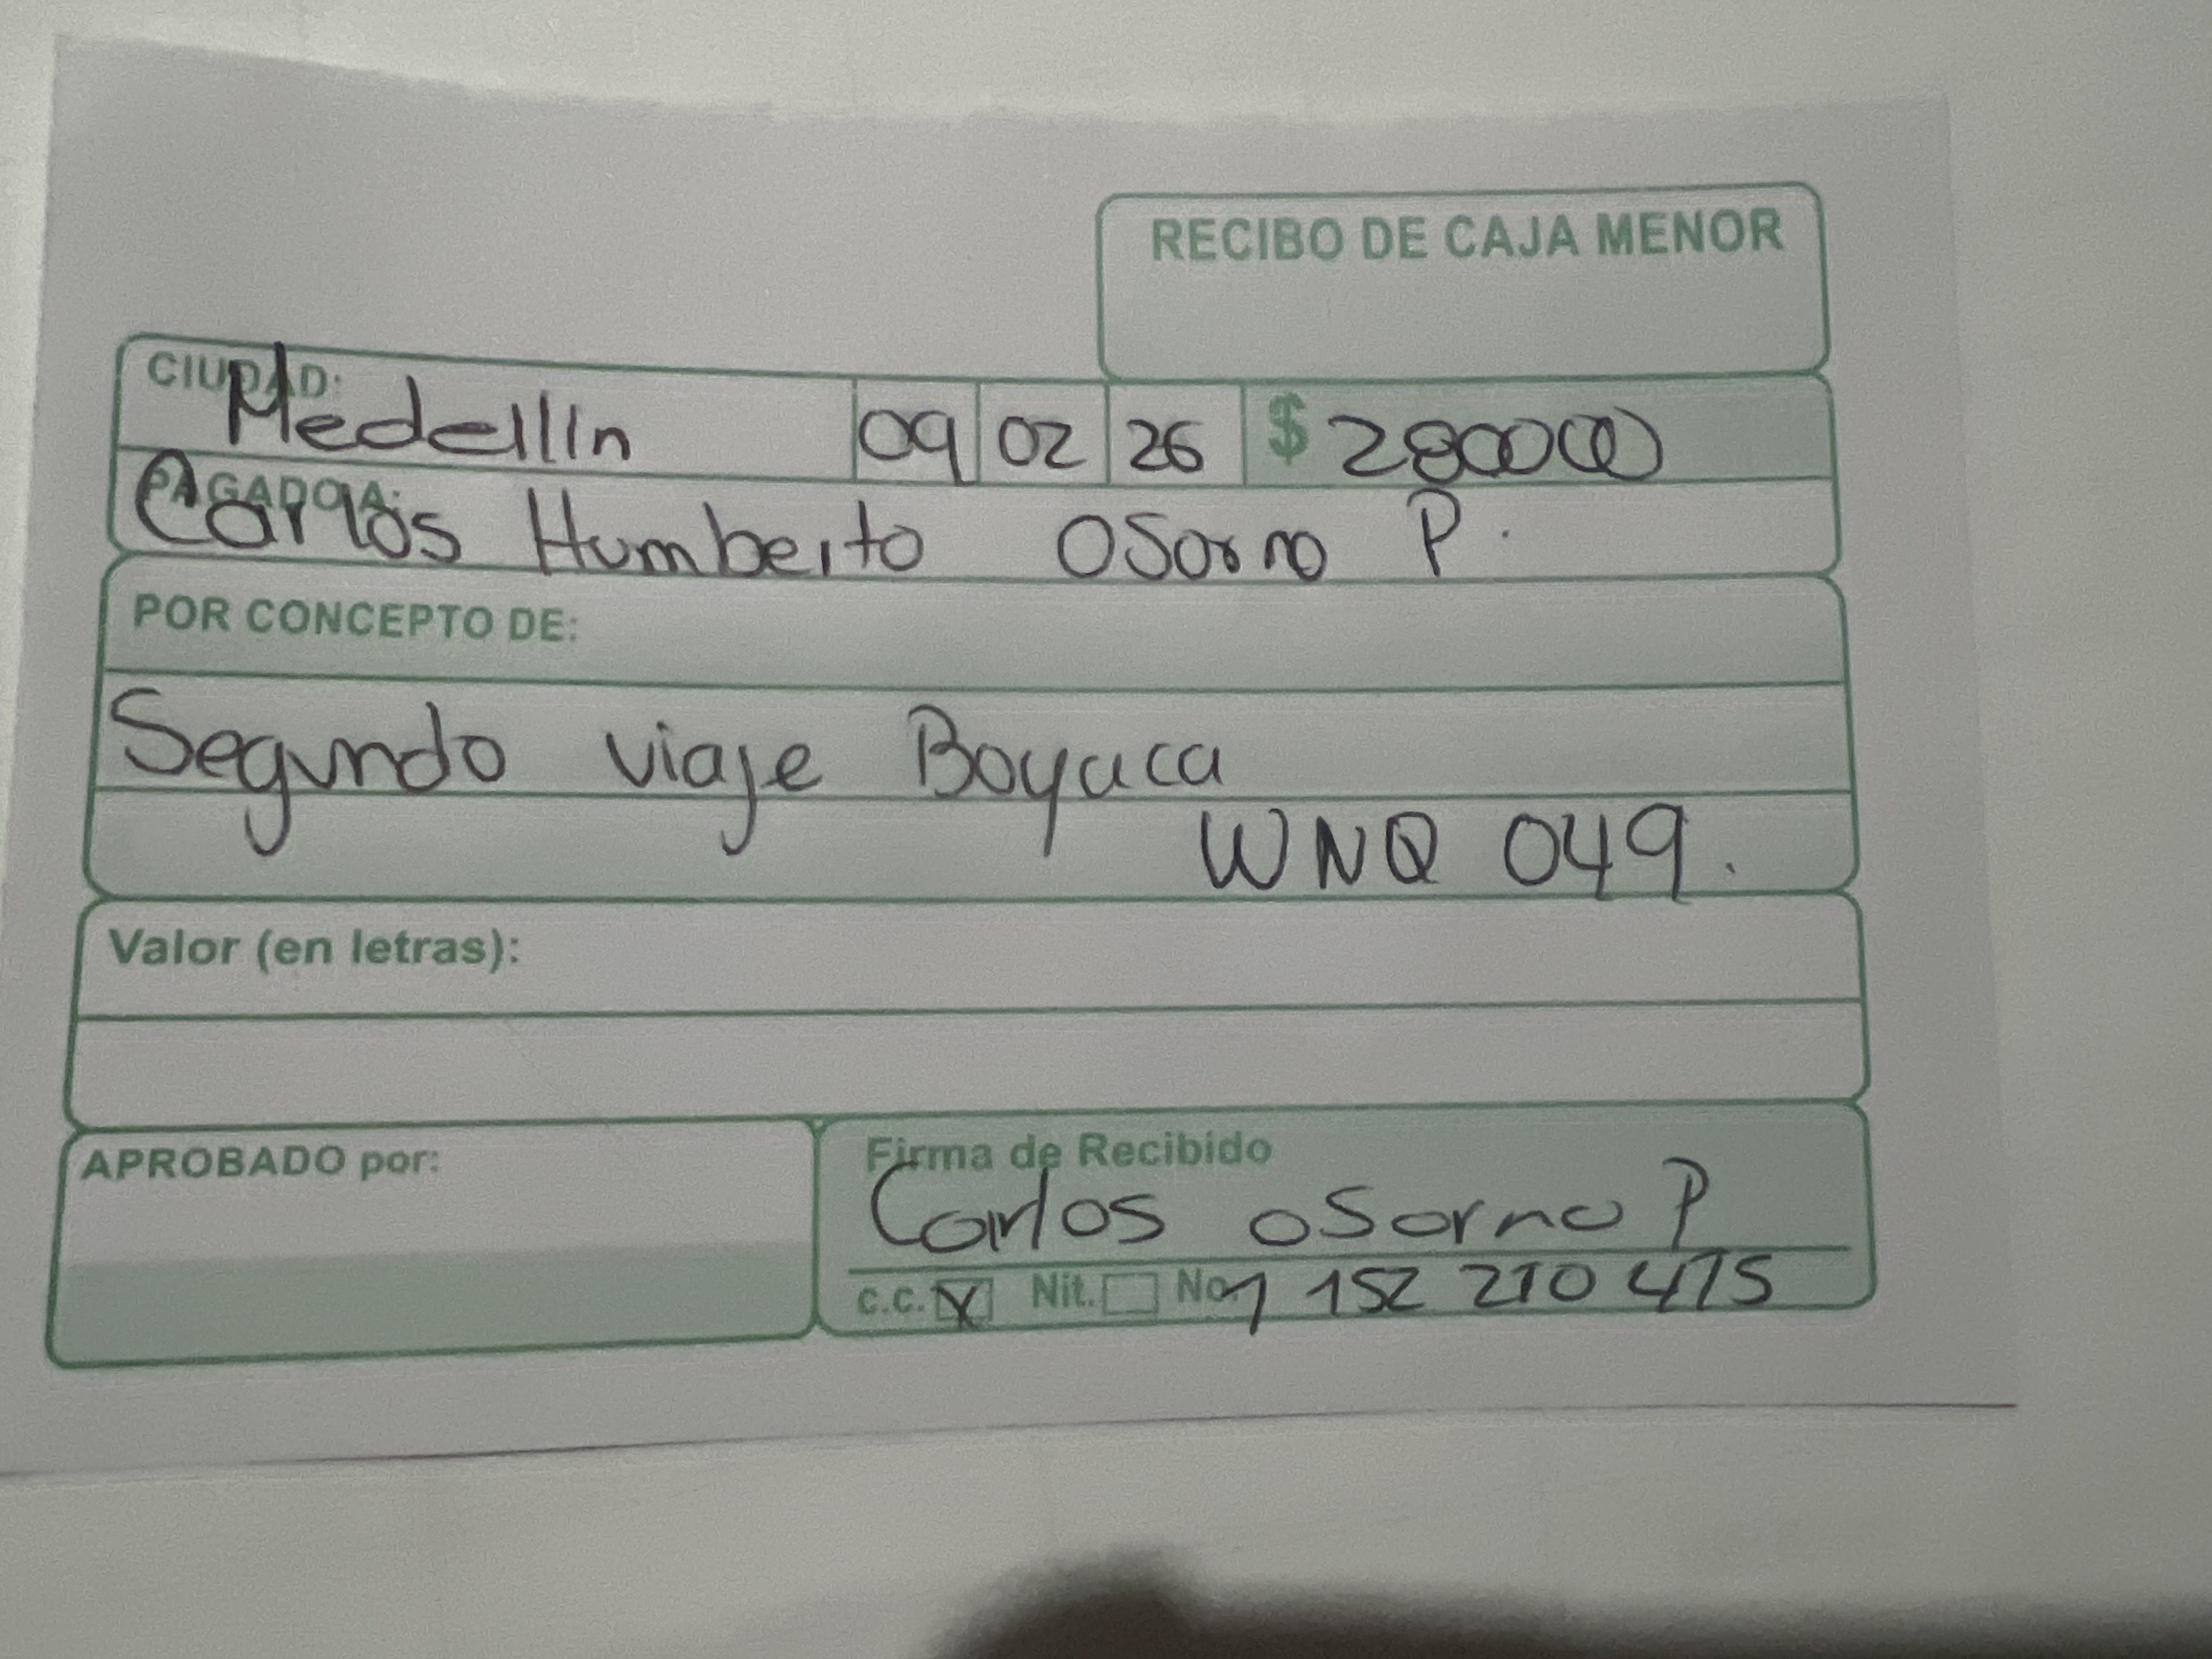 RECIBO DE CAJA MENOR
CIUDAD: Medellin 09 02 26 $ 280000
PAGADO A: Carlos Humberto Osorno P.
POR CONCEPTO DE:
Segundo viaje Boyaca
WNQ 049.
Valor (en letras):
APROBADO por:
Firma de Recibido
Carlos Osorno P
c.c. X Nit. No. 1 152 210 475